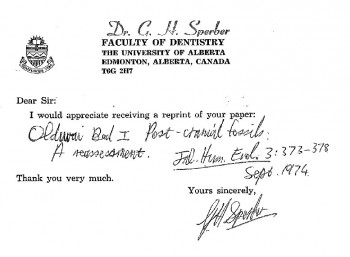 Dr. G. H. Sperber
FACULTY OF DENTISTRY
THE UNIVERSITY OF ALBERTA
EDMONTON, ALBERTA, CANADA
T6G 2H7
Dear Sir:
I would appreciate receiving a reprint of your paper:
Olduwai Bed I Post-cranial fossils.
A reassessment. Jnl. Hum. Evol. 3:373-378
Sept. 1974.
Thank you very much.
Yours sincerely,
G H Sperber